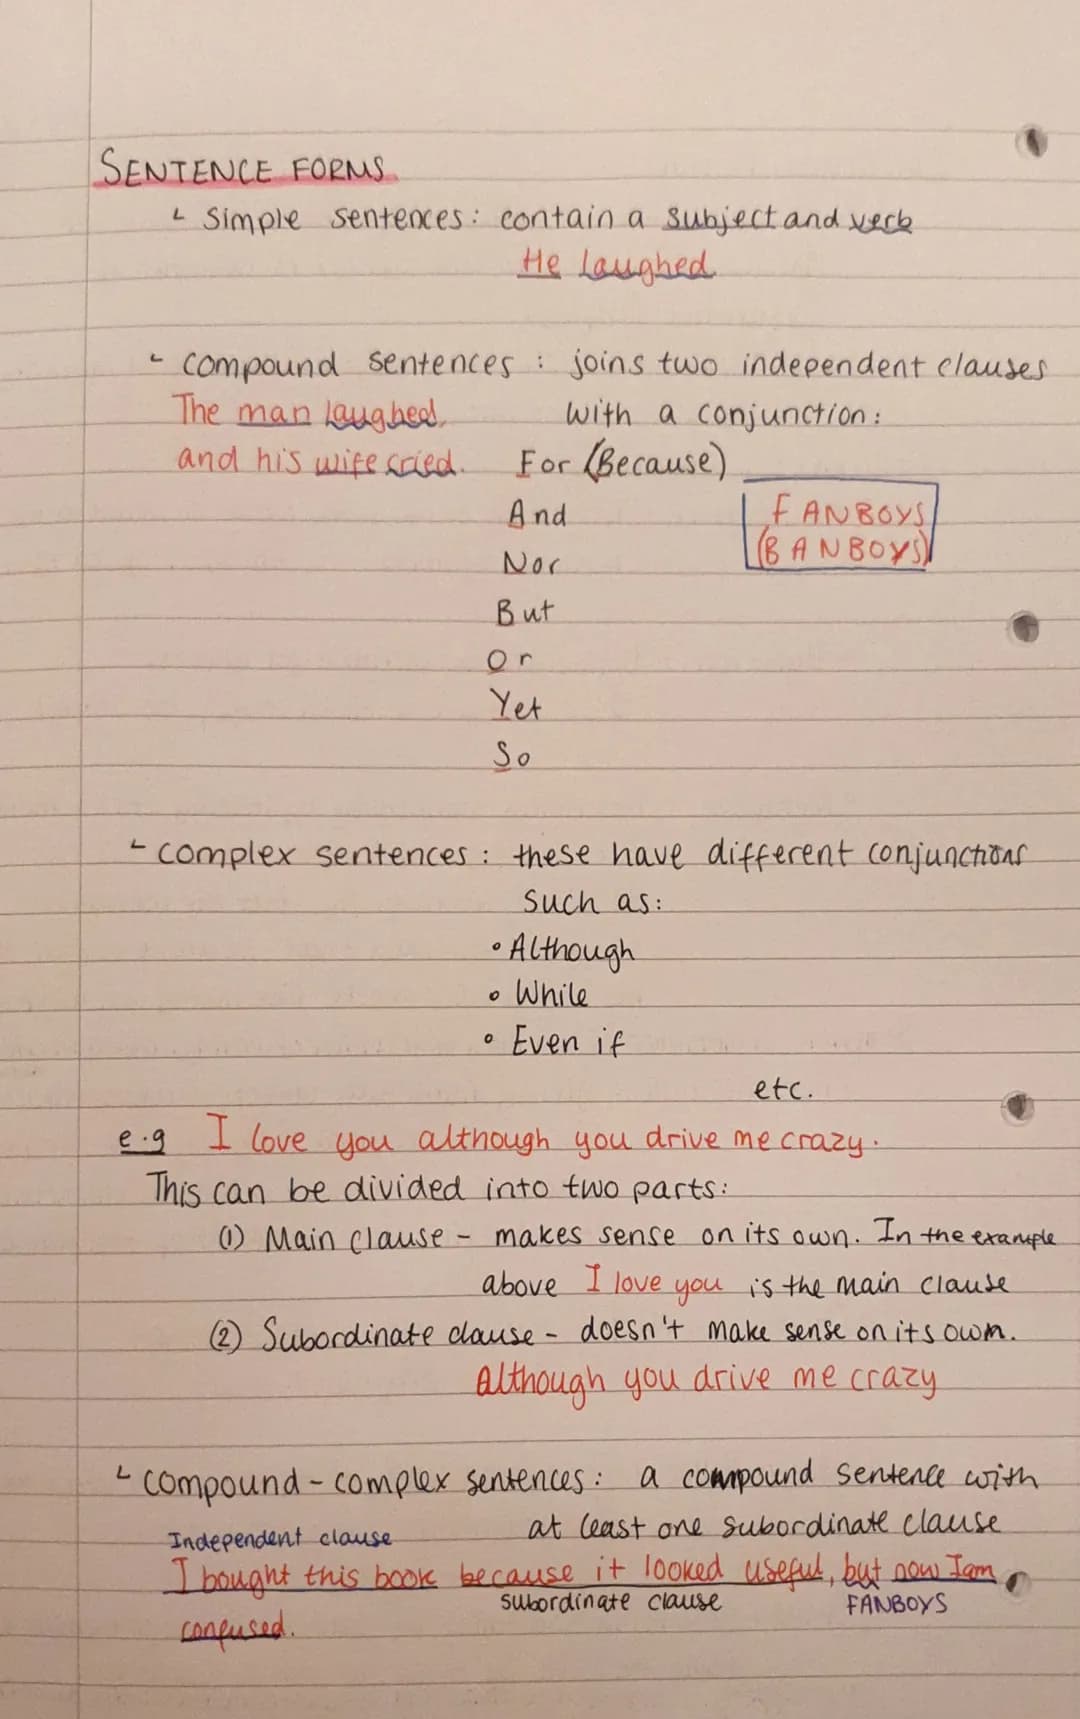 SENTENCE FORMS
Simple sentences: contain a subject and verb
He laughed
compound sentences : joins two independent clauses
The man laughed with a conjunction:
and his wife cried. For (Because)
And
FANBOYS
Nor
(BANBOYS)
But
Or
Yet
So
complex sentences : these have different conjunctions
such as:
• Although
• While
• Even if
etc.
e.g I love you although you drive me crazy.
This can be divided into two parts:
(1) Main clause - makes sense on its own. In the example
above I love you is the main clause
(2) Subordinate clause - doesn't make sense on its own.
Although you drive me crazy
compound-complex sentences: a compound sentence with
at least one subordinate clause
Independent clause
I bought this book because it looked useful, but now I am
subordinate clause FANBOYS
confused.